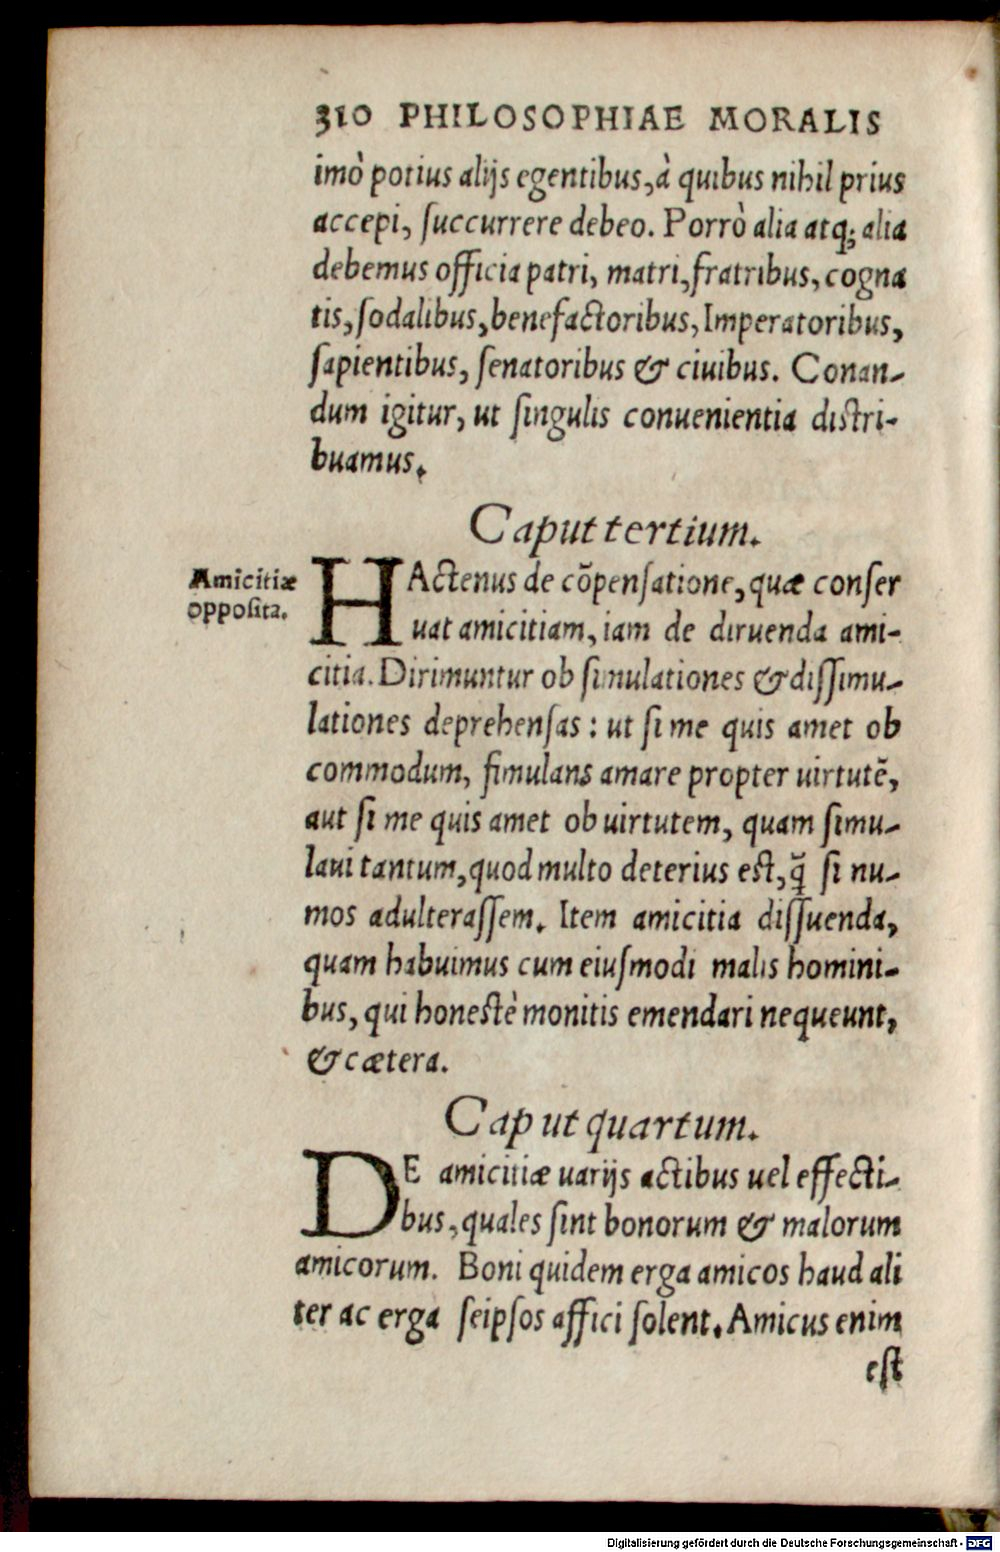 310 PHILOSOPHIAE MORALIS
imò potius alijs egentibus, à quibus nihil prius
accepi, ſuccurrere debeo. Porrò alia atq; alia
debemus officia patri, matri, fratribus, cogna
tis, ſodalibus, benefactoribus, Imperatoribus,
ſapientibus, ſenatoribus & ciuibus. Conan-
dum igitur, ut ſingulis conuenientia distri-
buamus.
Caput tertium.
Amicitiæ
oppoſita.
HActenus de cōpenſatione, quæ conſer
uat amicitiam, iam de diruenda ami-
citia. Dirimuntur ob ſimulationes & diſſimu-
lationes deprehenſas: ut ſi me quis amet ob
commodum, ſimulans amare propter uirtutē,
aut ſi me quis amet ob uirtutem, quam ſimu-
laui tantum, quod multo deterius eſt, q̃ ſi nu-
mos adulteraſſem. Item amicitia diſſuenda,
quam habuimus cum eiuſmodi malis homini-
bus, qui honeſtè monitis emendari nequeunt,
& cætera.
Caput quartum.
DE amicitiæ uarijs actibus uel effecti-
bus, quales ſint bonorum & malorum
amicorum. Boni quidem erga amicos haud ali
ter ac erga ſeipſos affici ſolent. Amicus enim
eſt
Digitalisierung gefördert durch die Deutsche Forschungsgemeinschaft - DFG